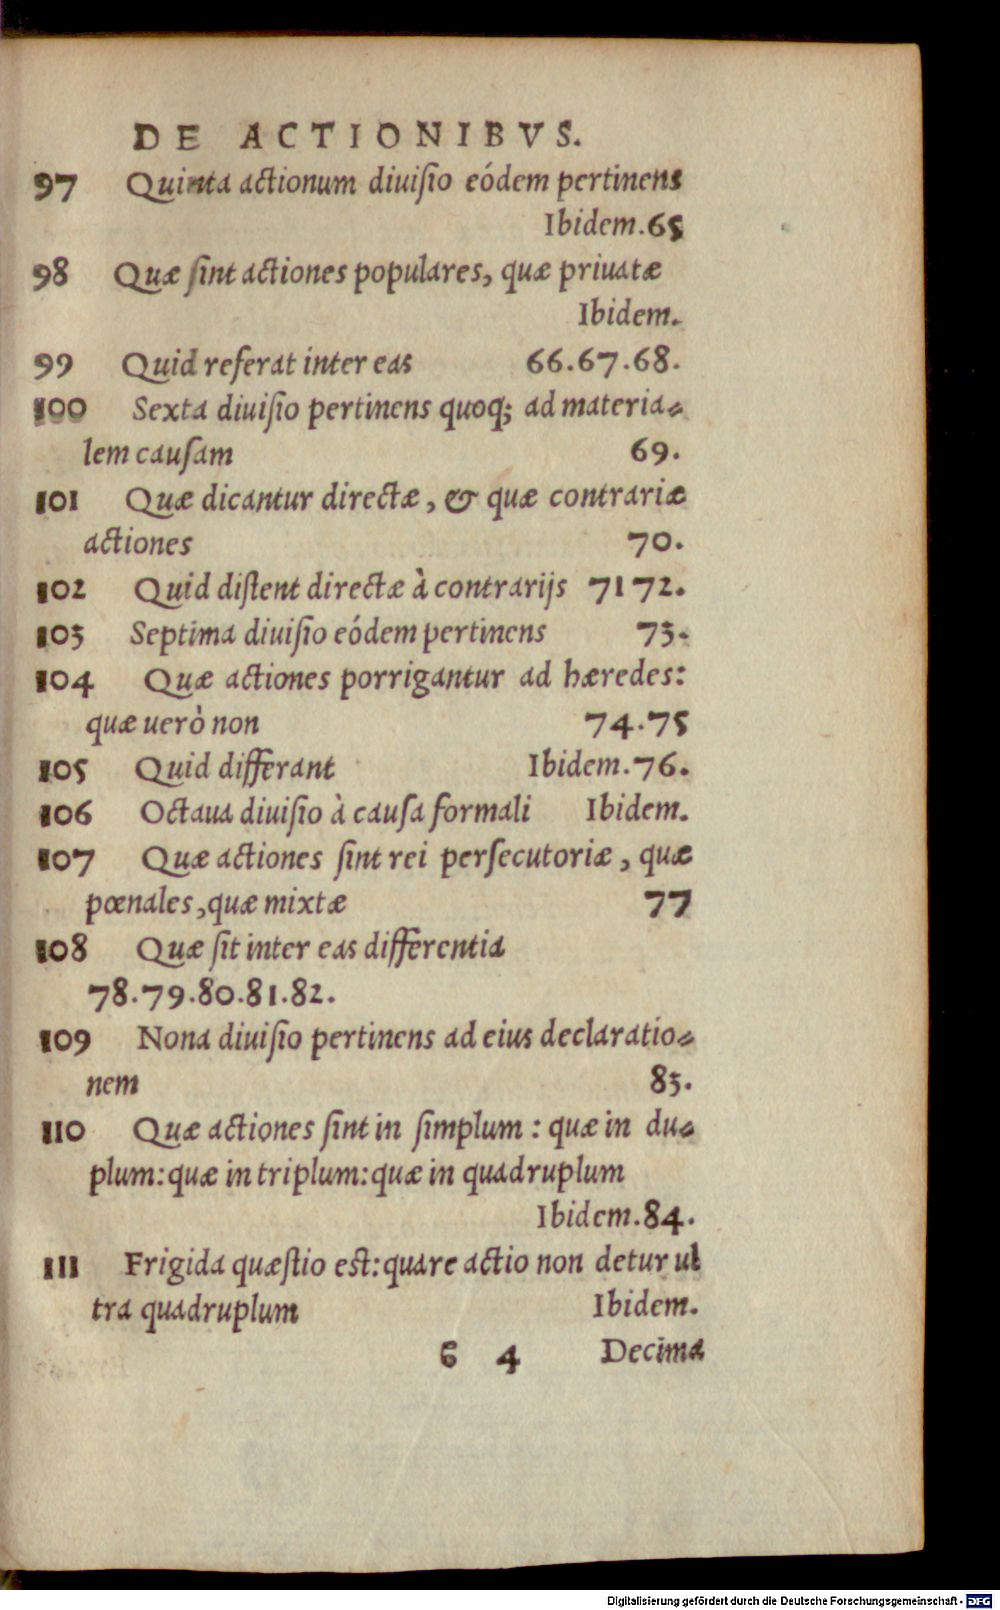 DE ACTIONIBVS.
97 Quinta actionum diuiſio eódem pertinens
Ibidem.65
98 Quæ ſint actiones populares, quæ priuatæ
Ibidem.
99 Quid referat inter eas 66.67.68.
100 Sexta diuiſio pertinens quoq; ad materia-
lem cauſam 69.
101 Quæ dicantur directæ, & quæ contrariæ
actiones 70.
102 Quid diſtent directæ à contrarijs 71 72.
103 Septima diuiſio eódem pertinens 73.
104 Quæ actiones porrigantur ad hæredes:
quæ uerò non 74.75
105 Quid differant Ibidem.76.
106 Octaua diuiſio à cauſa formali Ibidem.
107 Quæ actiones ſint rei perſecutoriæ, quæ
pœnales, quæ mixtæ 77
108 Quæ ſit inter eas differentia
78.79.80.81.82.
109 Nona diuiſio pertinens ad eius declaratio-
nem 83.
110 Quæ actiones ſint in ſimplum: quæ in du-
plum: quæ in triplum: quæ in quadruplum
Ibidem.84.
111 Frigida quæſtio eſt: quare actio non detur ul
tra quadruplum Ibidem.
6 4 Decima
Digitalisierung gefördert durch die Deutsche Forschungsgemeinschaft - DFG